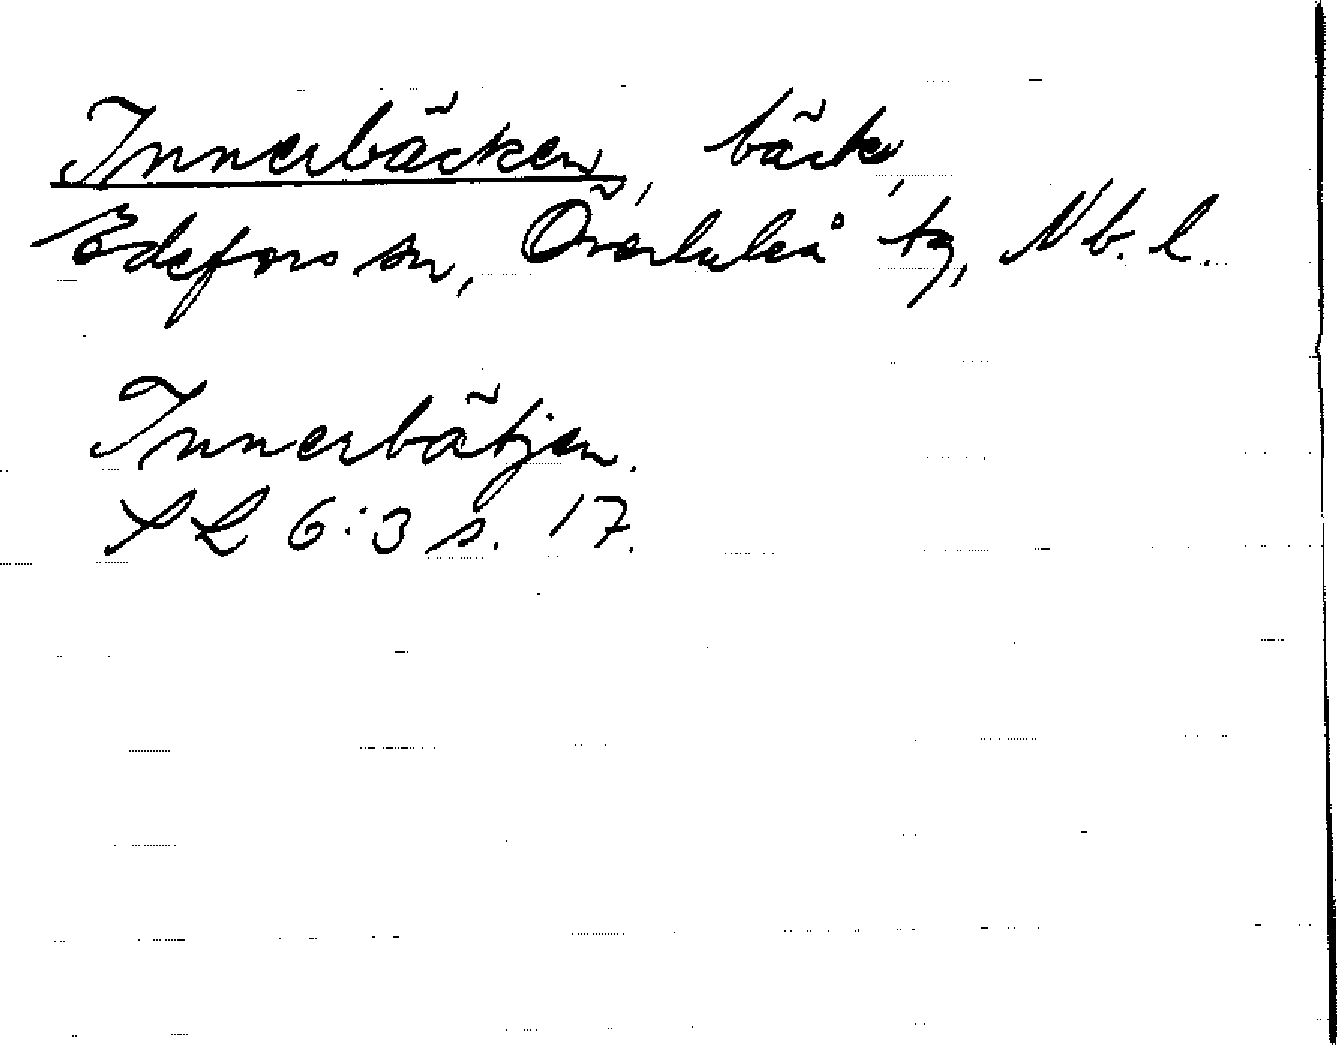 Innerbäcken, bäck,
Edefors sn, Överluleå tg, Nb. l.
Innerbätjen.
SL 6:3 s. 17.